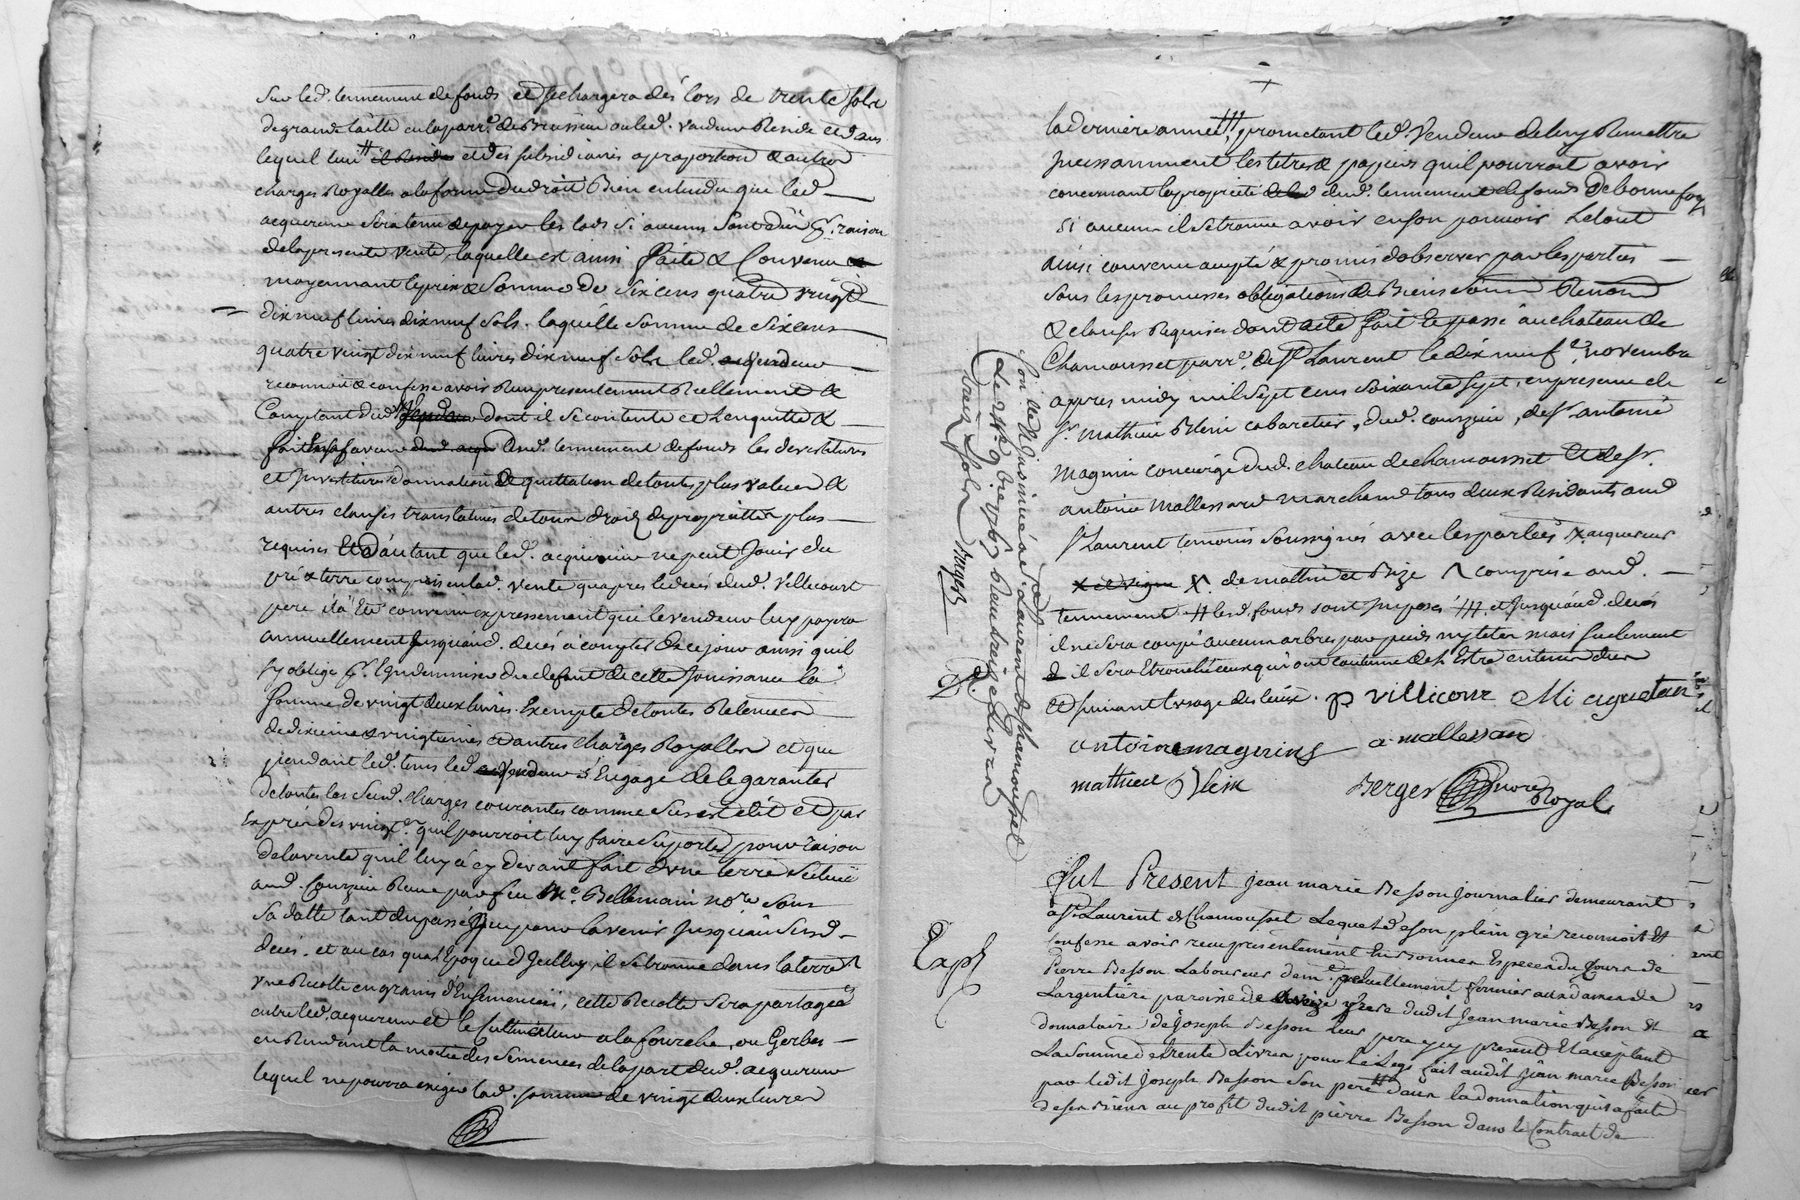 Sur led. tennement de fonds et se chargera dés lors de trente sols
de grande taille en la parr.e de Brussieu ou led. vendeur Reside et dans
lequel lieu # il Reside et des subsidiaires a proportion & autres
charges Royalles a la forme du droit Bien entendu que led.
acquereur sera tenu de payer les lods si aucuns sont düs pr. raison
de la presente vente, laquelle est ainsi faite & Convenue &
moyennant le prix & Somme de Six cens quatre vingt
dix neuf livres dix neuf sols. laquelle somme de Six cens
quatre vingt dix neuf livres dix neuf sols led. vendeur
reconnoit & confesse avoir Reçu presentement Reellement &
Comptant dud. dont il se contente et l'enquitte &
fait en sa faveur dud. tennement de fonds les devestitures
et Investitures donnation & quittation de toutes plus values &
autres clauses translatives de tous droits de proprietté plus
requises Et d'autant que led. acquereur ne peut Jouir du
pré & terre compris en lad. vente qu'apres le decés dud. Villecourt
pere il a Eté convenu expressement que le vendeur luy payera
annuellement Jusqu'aud. decés a compter de ce jour ainsi qu'il
s'y oblige pr. l'Indemniser du deffaut de cette Jouissance la
somme de vingt deux livres Exempte de toutes Retenues
de dixieme & vingtiemes et autres charges Royalles et que
pendant led. tems led. vendeur s'Engage de le garantir
de toutes les susd. charges courantes comme sus est dit et par
Exprés des vingt.es qu'il pourroit luy faire suporter pour raison
de la vente qu'il luy a cy devant fait d'une terre scituée
aud. Courzieu Reçue par feu Me. Bellemain nore. sous
sa datte tant du passé que pour l'avenir Jusqu'au susd.
decés. et au cas qu'a l'Epoque d'Jcelluy il se trouve dans la terre
une Recolte en grains d'Ensemencée, cette Recolte sera partagée
entre led. acquereur et le cultivateur a la fourche, ou Gerbes
en Rendant la moitié des semences de la part dud. acquereur
lequel ne pourra exiger lad. somme de vingt deux livres
la derniere année ///, promettant led. Vendeur de luy Remettre
Incessamment les titres & papiers qu'il pourroit avoir
concernant la proprieté dud. tennement de fonds de bonne foy
si aucuns il se trouve avoir en son pouvoir Le tout
ainsi convenu accepté & promis d'observer par les parties
sous les promesses obligations de Biens soum. Renon.
& clauses Requises dont acte fait Et passé au chateau de
Chamousset parr.e de St Laurent le dix neuf e. novembre
apres midy mil sept cens soixante sept, en presence de
Sr. mathieu Blein cabaretier, dud. courzieu, de Sr. antoine
Magnin concierge dud. chateau de chamousset Et de Sr.
antoine Mallessard marchand tous deux Residants aud
St Laurent temoins soussignés avec les parties X acquereur
X et vigne X. de mathieu et Brize comprise aud.
tennement # lesd. fonds sont Imposés /// et Jusqu'aud. decés
il ne sera coupé aucuns arbres par pieds ny teter mais seulement
& il sera Etronché ceux qui ont coutume de l'Estre en tems dûs
et suivant l'usage des lieux. P villicour Mi aguetan
antoine magning a mallessard
mathieu Blein Berger nore Royal
Con.llé & Insinué a St. Laurent de Chamousset
Le 24e. 9.bre 1767 Reçu treize livres
douze sols Berger
Expé
Fut Present Jean marie Besson journalier demeurant
a St Laurent de Chamousset Lequel de son plein gré reconnoit &
confesse avoir reçu presentement En bonnes Especes du Cours de
Pierre Besson Laboureur dem.t. actuellement fermier aux dames de
Largentière paroisse de aveize frere dudit Jean marie Besson &
donnataire de Joseph Besson leur pere y cy present Et acceptant
La Somme de trente Livres pour le Legs fait audit jean marie Besson
par ledit Joseph Besson son pere dans la donnation qu'il a faite
de ses Biens au profit dudit pierre Besson dans le Contract de